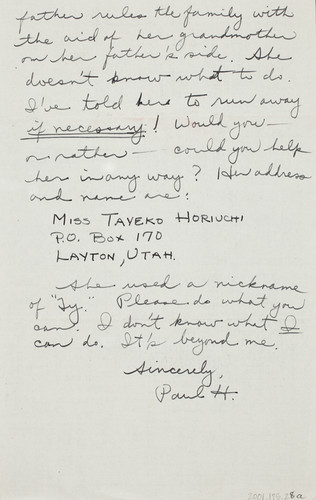 father rules the family with
the aid of her grandmother
on her father's side. She
doesn't know what to do.
I've told her to run away
if necessary! Would you —
or rather — could you help
her in any way? Her address
and name are:
MISS TAYEKO HORIUCHI
P.O. BOX 170
LAYTON, UTAH.
She used a nickname
of "Ty." Please do what you
can. I don't know what I
can do. It's beyond me.
Sincerely,
Paul H.